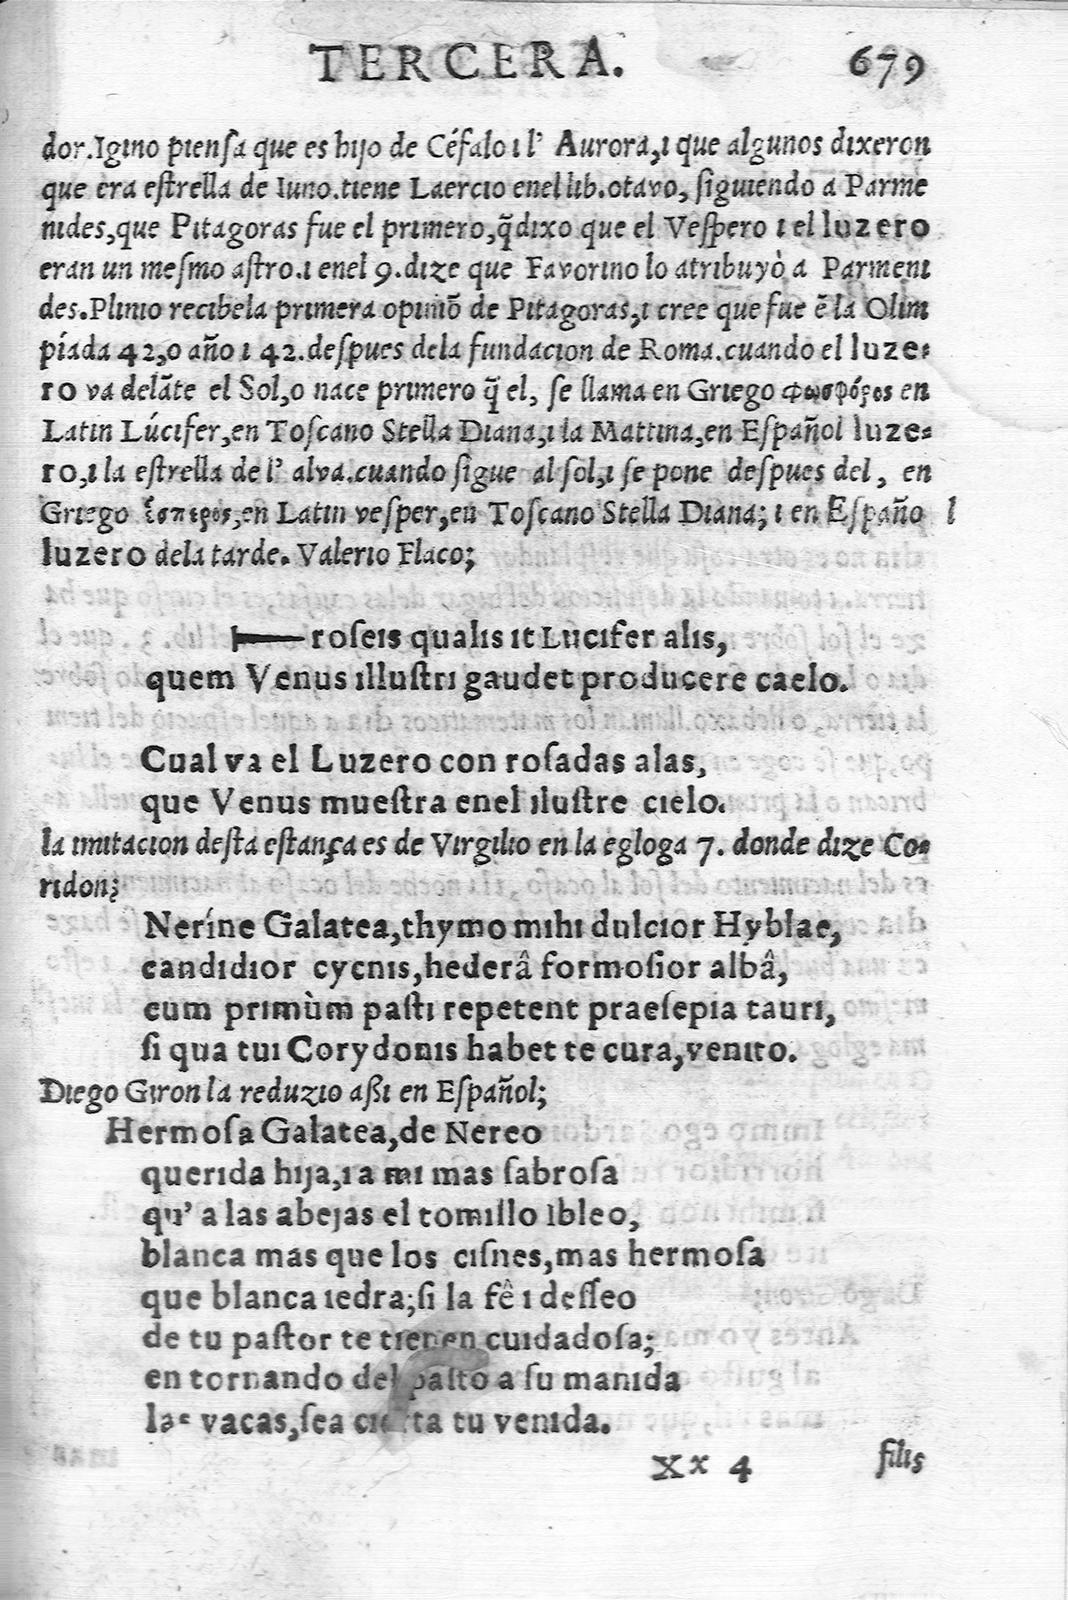 TERCERA. 679
dor.Igıno pıenſa que es hıjo de Céfalo ı l' Aurora,ı que algunos dıxeron
que era eſtrella de Iuno.tıene Laercıo enel lıb.otavo, ſıguıendo a Parme
nıdes,que Pıtagoras fue el prımero,q̃dıxo que el Veſpero ı el luzero
eran un meſmo aſtro.ı enel 9.dıze que Favorıno lo atrıbuyò a Parmenı
des.Plınıo recıbela prımera opınıõ de Pıtagoras,ı cree que fue ẽ la Olım
píada 42,o año ı 42.deſpues dela fundacıon de Roma.cuando el luze-
ro va delãte el Sol,o nace prımero q̃ el, ſe llama en Grıego Φωσφόρος en
Latın Lúcıfer,en Toſcano Stella Dıana,ı la Mattına,en Eſpañol luze-
ro,ı la eſtrella de l' alva.cuando ſıgue al ſol,ı ſe pone deſpues del, en
Grıego ἕσπερος,en Latın veſper,en Toſcano Stella Dıana; ı en Eſpaño l
luzero dela tarde. Valerıo Flaco;
—— roſeıs qualıs ıt Lucıfer alıs,
quem Venus ılluſtrı gaudet producere caelo.
Cual va el Luzero con roſadas alas,
que Venus mueſtra enel ıluſtre cıelo.
la ımıtacıon deſta eſtança es de Vırgılıo en la egloga 7. donde dıze Co-
rıdon;
Neríne Galatea,thymo mıhı dulcıor Hyblae,
candıdıor cycnıs,hederâ formoſıor albâ,
cum prımùm paſtı repetent praeſepıa taurı,
ſi qua tuı Corydonıs habet te cura,venıto.
Dıego Gıron la reduzıo aßı en Eſpañol;
Hermoſa Galatea,de Nereo
querıda hıja,ı a mı mas ſabroſa
qu' a las abejas el tomıllo ıbleo,
blanca mas que los cıſnes,mas hermoſa
que blanca ıedra;ſi la fê ı deſſeo
de tu paſtor te tıenen cuıdadoſa;
en tornando del paſto a ſu manıda
las vacas,ſea cıerta tu venıda.
Xx 4 ſılıs